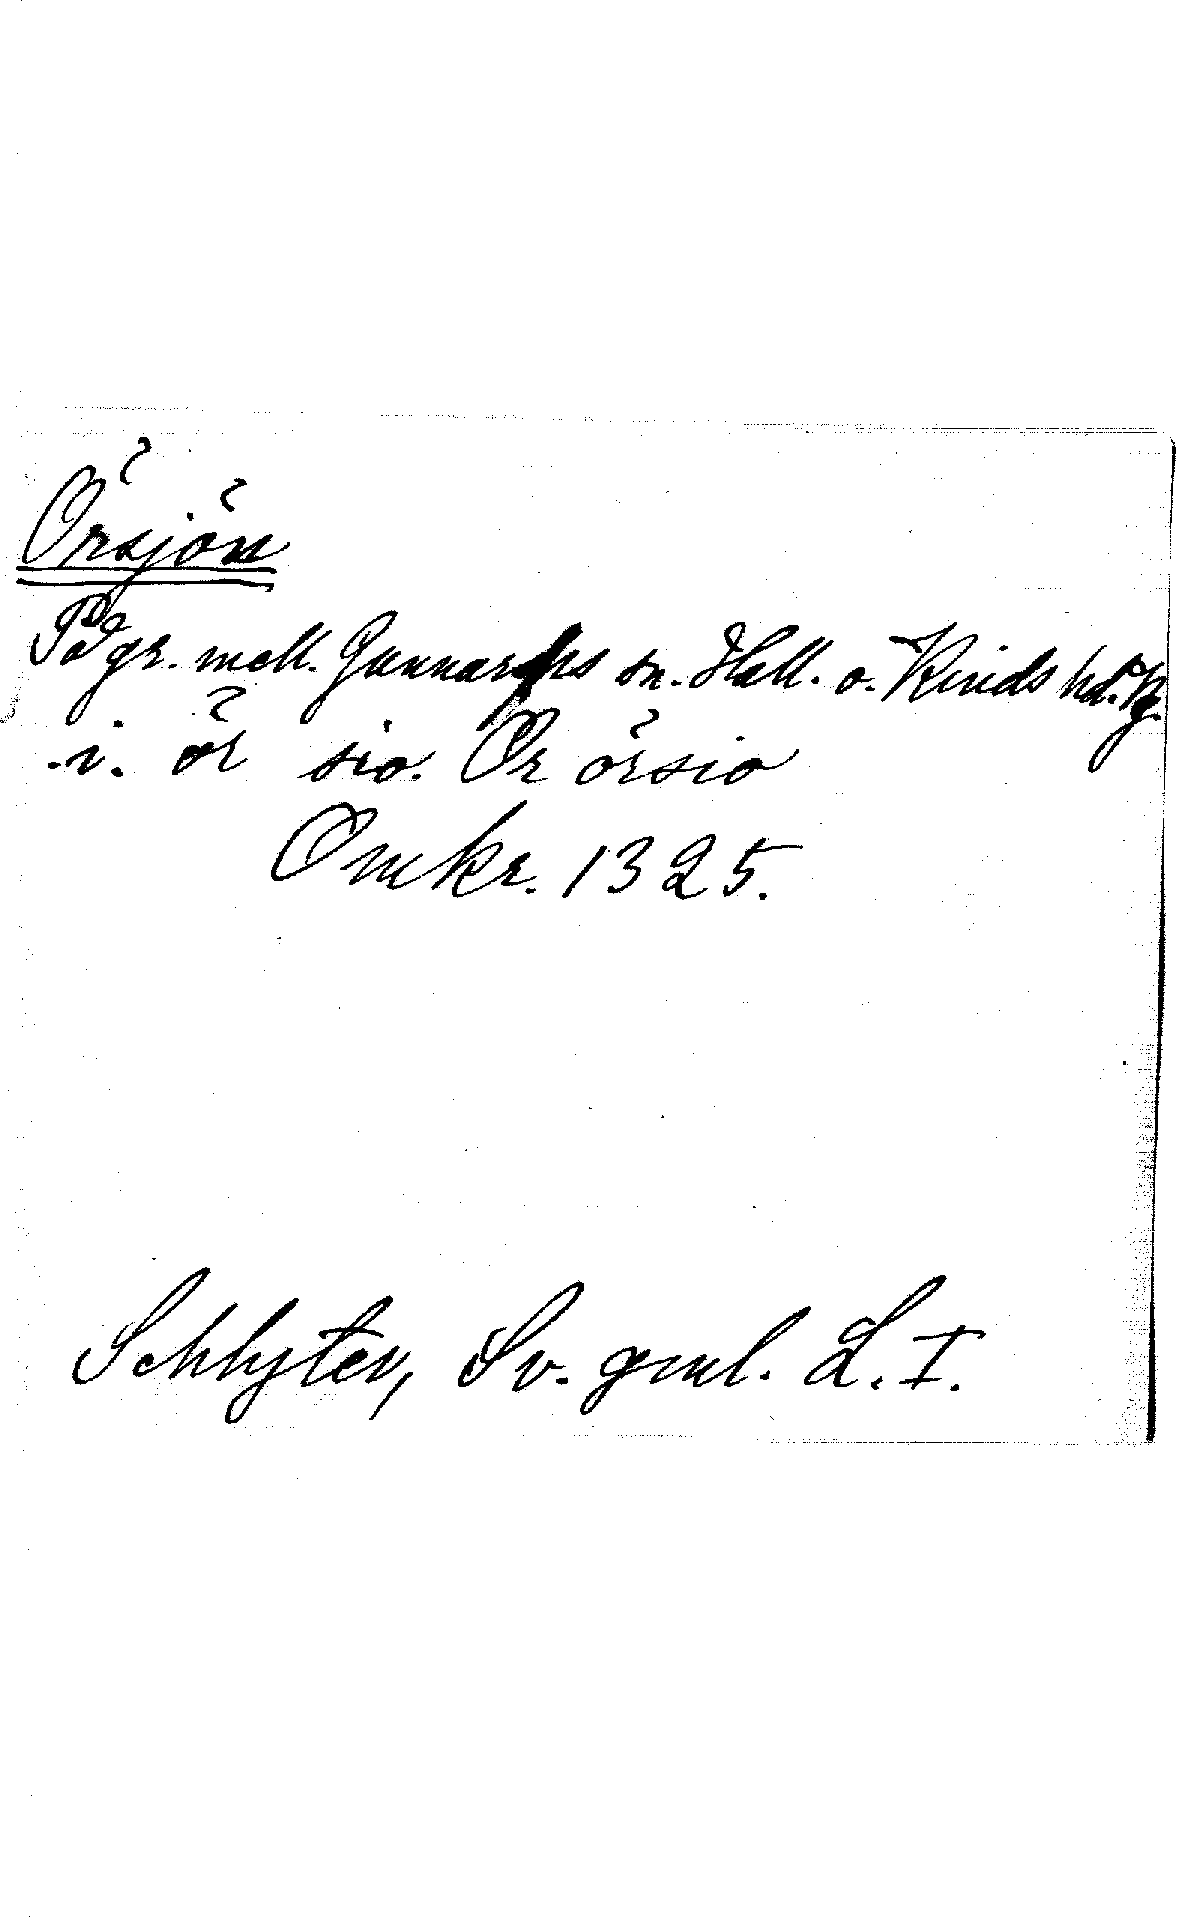 Örsjön
På gr. mell. Gunnarps sn. Hall. o. Kinds hd. Vg.
.i. ör sio. Or örsio
Omkr. 1325.
Schlyter, Sv. gml. L. I.